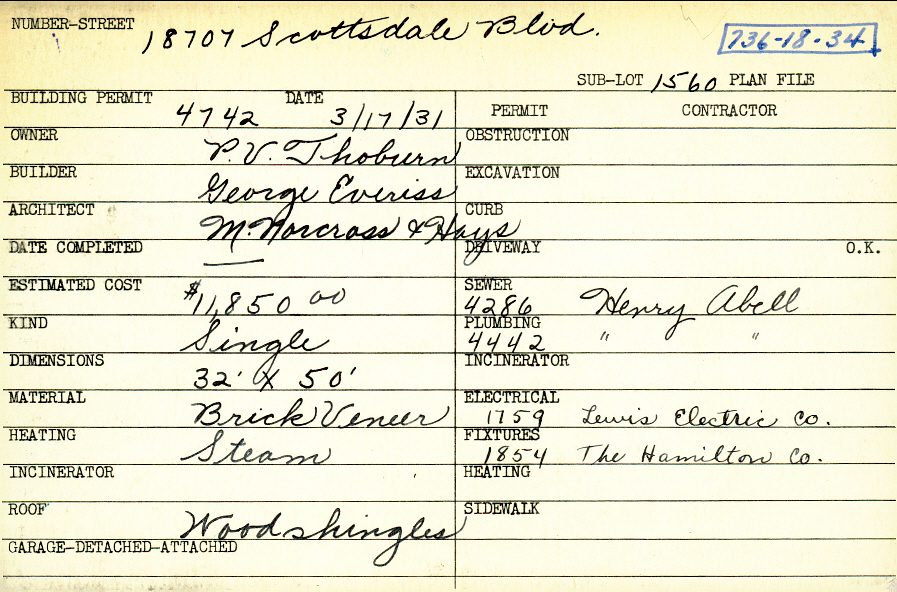 NUMBER-STREET 18707 Scottsdale Blvd.
736-18-34
SUB-LOT 1560 PLAN FILE
BUILDING PERMIT 4742 DATE 3/17/31
PERMIT CONTRACTOR
OWNER P.V. Thoburn
OBSTRUCTION
BUILDER George Everiss
EXCAVATION
ARCHITECT M. Norcross & Hays
CURB
DATE COMPLETED —
DRIVEWAY O.K.
ESTIMATED COST $11,850 00
SEWER 4286 Henry Abell
KIND Single
PLUMBING 4442 " "
DIMENSIONS 32' X 50'
INCINERATOR
MATERIAL Brick Veneer
ELECTRICAL 1759 Lewis Electric Co.
HEATING Steam
FIXTURES 1854 The Hamilton Co.
INCINERATOR
HEATING
ROOF Wood shingles
SIDEWALK
GARAGE-DETACHED-ATTACHED